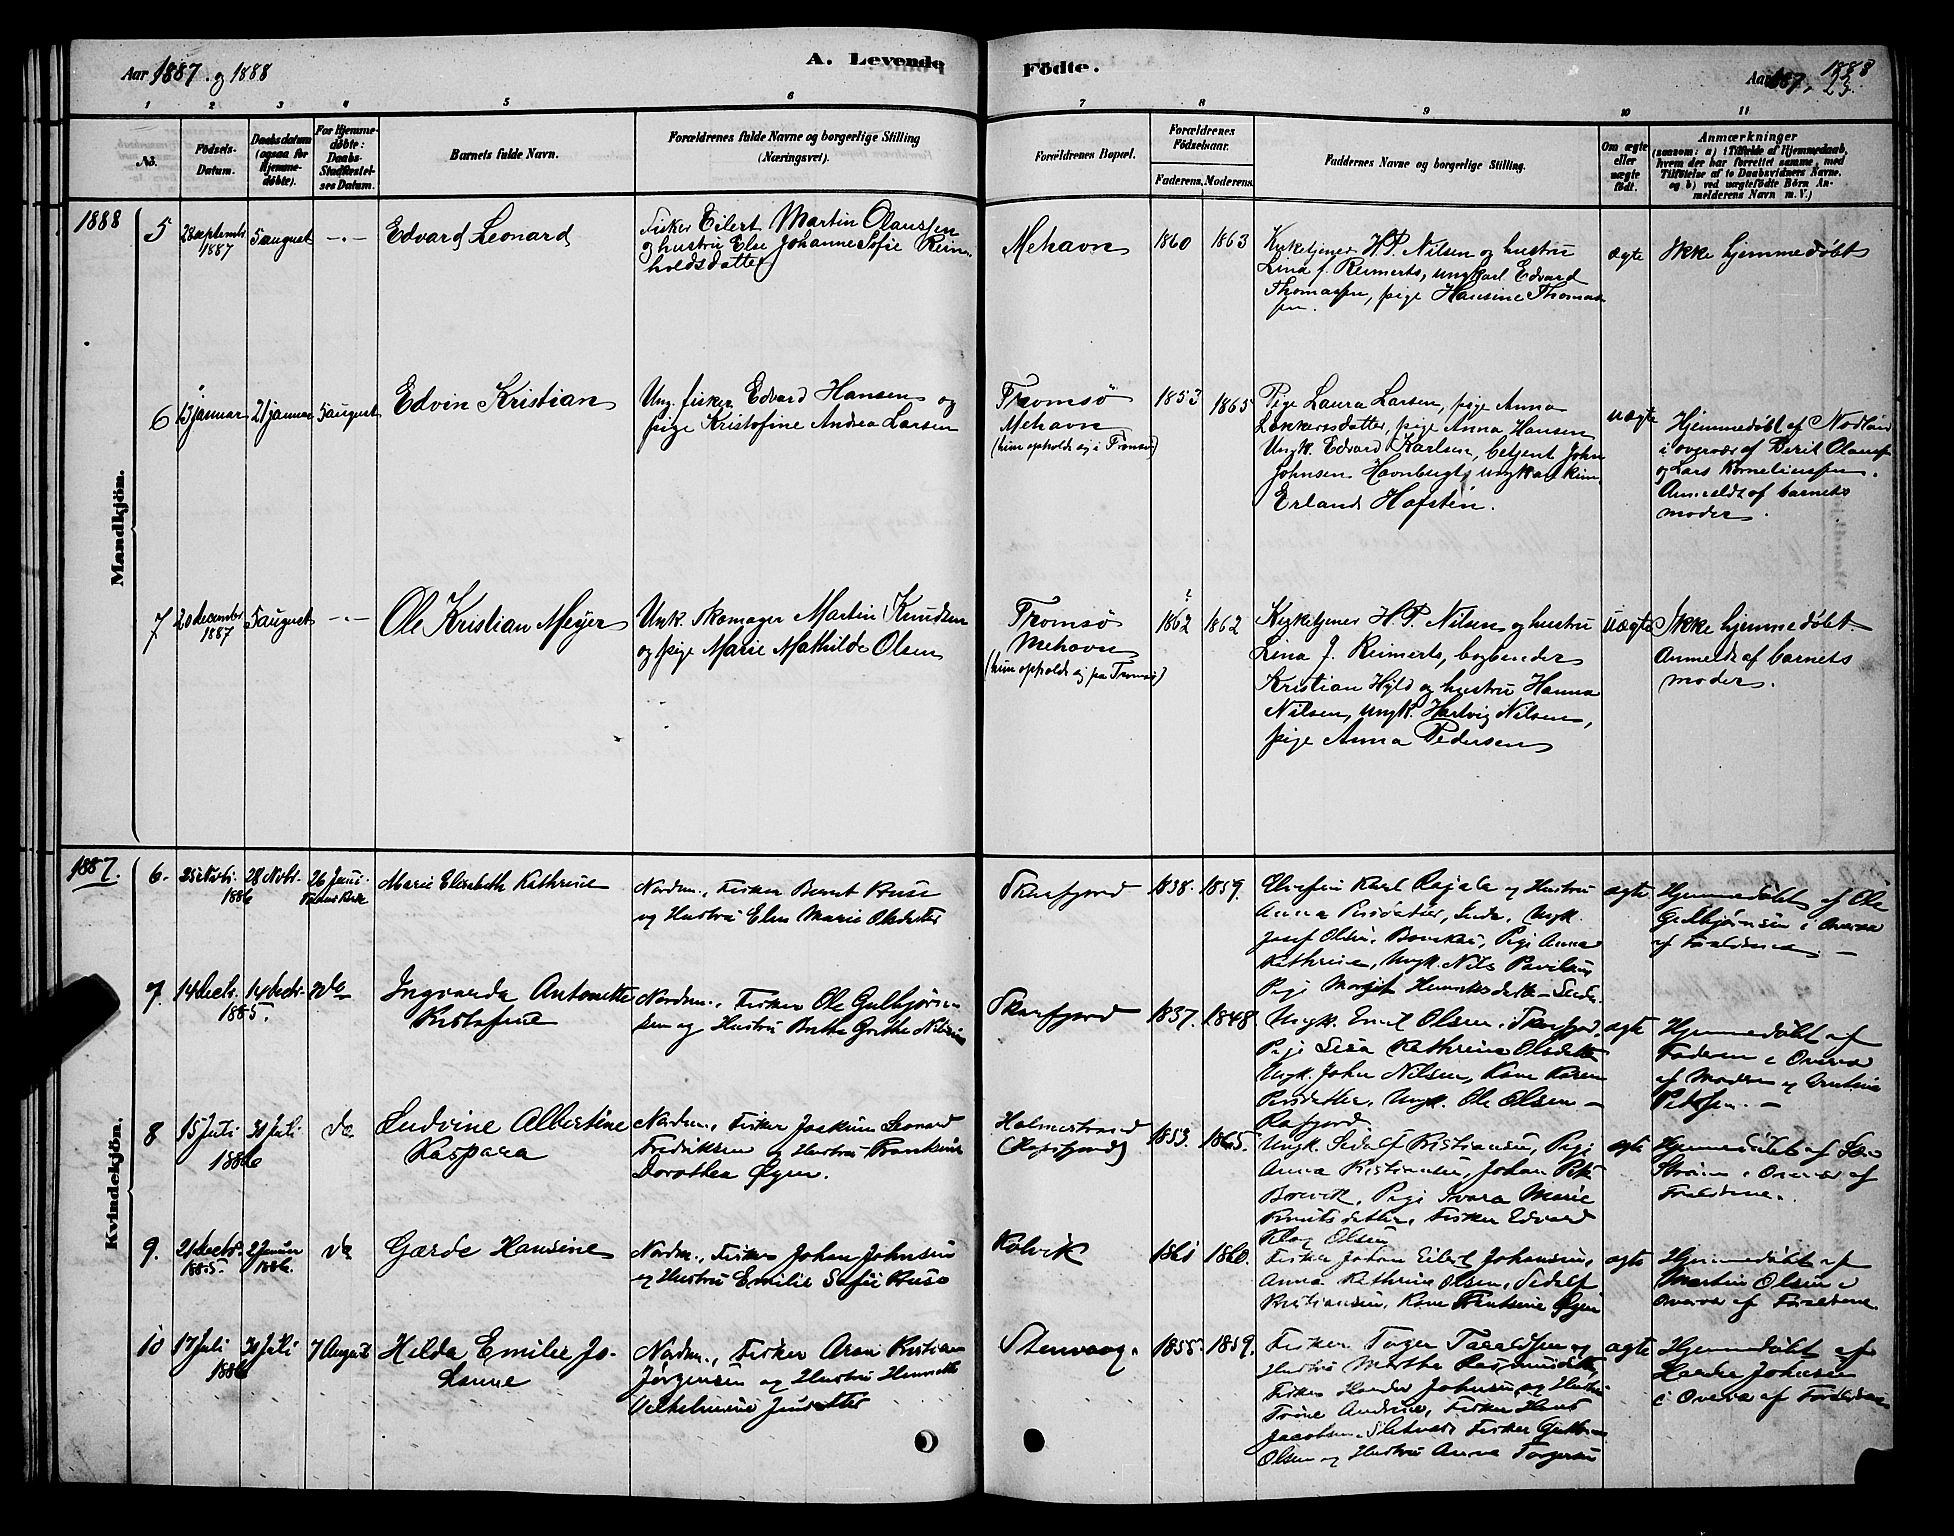 Aar 1887. og 1888
A. Levende Födte.
Aar 1887. 1888
23.
1 2 3 4 5 6 7 8 9 10 11
No.
Födsels-
Datum.
Daabsdatum
(ogsaa for
Hjemme-
döbte).
For Hjemme-
döbte:
Daabs-
Stadfæstel-
ses Datum.
Barnets fulde Navn.
Forældrenes fulde Navne og borgerlige Stilling
(Næringsvei).
Forældrenes Bopæl.
Forældrenes
Födselsaar.
Faderens. Moderens.
Faddernes Navne og borgerlige Stilling.
Om ægte
eller
uægte
födt.
Anmærkninger
(saasom: a) i Tilfælde af Hjemmedaab,
hvem der har forrettet samme, med
Tilföielse af to Daabsvidners Navne,
og b) ved uægtefödte Börn An-
melderens Navn m. V.)
Mandkjön.
1888
5
28 septembr
1887
5 august
-"-
Edvard Leonard
Fisker Eilert Martin Olaussen
og hustru Else Johanne Sofie Rein-
holdsdatter
Mehavn
1860
1863
Kirketjener H. P. Nilsen og hustru
Lina f. Reimerts, ungkarl Edvard
Thomassen, pige Hansine Thomas-
sen.
ægte
Ikke hjemmedøbt
6
13 januar
21 januar
5 august
Edvin Kristian
Ung. fisker Edvard Hansen og
pige Kristofine Andrea Larsen
Tromsø
Mehavn
(hun opholdr sig i Tromsø)
1853
1865
Pige Laura Larsen, pige Anna
pige Anna Hansen
Ungk. Edvard Karlsen, betjent John
Johnsen Havnberg, ungkarl
Erland Hafsten.
uægte
Hjemmedøbt af
i overvær af Berit Olausen
og Lars Korneliussen.
Anmeldt af barnets
moder.
7
20 december
1887
5 august
-"-
Ole Kristian Meyer
Unk. skomager Martin Knudsen
og pige Marie Mathilde Olsen
Tromsø
Mehavn
(hun opholdr sig paa Tromsø)
1862
1862
Kirketjener H. P. Nilsen og hustru
Lina J. Reimerts, bogbinder
Kristian Hyld og hustru Hanna
Nilsen, ungk. Hartvig Nilsen,
pige Anna Pedersen
uægte
Ikke hjemmedøbt.
Anmeldt af barnets
moder.
Kvindekjön.
1887.
6.
25 Novbr.
1886
28 Novbr.
26 Juni
Marie Elisabeth Kathrine
Nordm., Fisker Bernt Buse
og Hustru Elen Marie Olsdatter
Skarfjord
1838.
1859.
Karl Rajala og Hustru
Anna Persdatter, Ungk.
Josef Olsen, Pige Anna
Kathrine, Ungk. Nils
Pige Margit
ægte
Hjemmedøbt af Ole
Gulbjørnsen i Overvær
af Forældrene
7.
14 Decbr.
1885.
14 Decbr.
do
Ingvarda Antonette
Kristofine
Nordm., Fisker Ole Gulbjørn-
sen og Hustru Berthe Grethe Nilsen
Skarfjord
1837.
1848.
Ungk. Emil Olsen, Skarfjord,
Pige Lisa Kathrine Olsdatter
Ungk. John Nilsen, Kone Karen
Persdatter, Ungk. Ole Olsen
ægte
Hjemmedøbt af
Faderen i Overvær
af Moderen og
Pedersen.
8
15 Juli
1886
30 Juli
do
Ludvine Albertine
Kaspara
Nordm., Fisker Joakim Leonard
Fredriksen og Hustru Frantsine
Dorothea Øyen.
Holmestrand
1853.
1865.
Ungk. Sedolf Kristiansen, Pige
Anna Kristiansen, Johan
Brevik, Pige Svara Marie
Knutsdatter, Fisker Edvard
Olsen
ægte
Hjemmedøbt af
Strøm i Overvær af
Forældrene.
9.
21 Decbr.
1885.
2 Januar
1886.
do
Gærde Hansine
Nordm., Fisker Johan Johnsen
og Hustru Emilie Sofie Buse
Kolvik
1861
1860.
Fisker Johan Eilert Johansen,
Anna Kathrine Olsen, Sedolf
Kristiansen, Kone Frantsine Øyen
ægte
Hjemmedøbt af
Martin Olsen i
Overvær af Forældrene
10
17 Juli
1886
30 Juli
7 August
Hilda Emilie Jo-
hanne
Nordm., Fisker Aron Kristian
Jørgensen og Hustru Henriette
Vilhelmine Jensdatter
Stenvaag.
1855.
1859.
Fisker Torger Taraldsen og
Hustru Marthe Rasmusdatter,
Fisker Hæder Johnsen og Hustru
Trine Andrine, Fisker Hans
Jacobsen, Fisker
Olsen og Hustru Anna Torgersen
ægte
Hjemmedøbt af
Hæder Johnsen
i Overvær af Forældrene